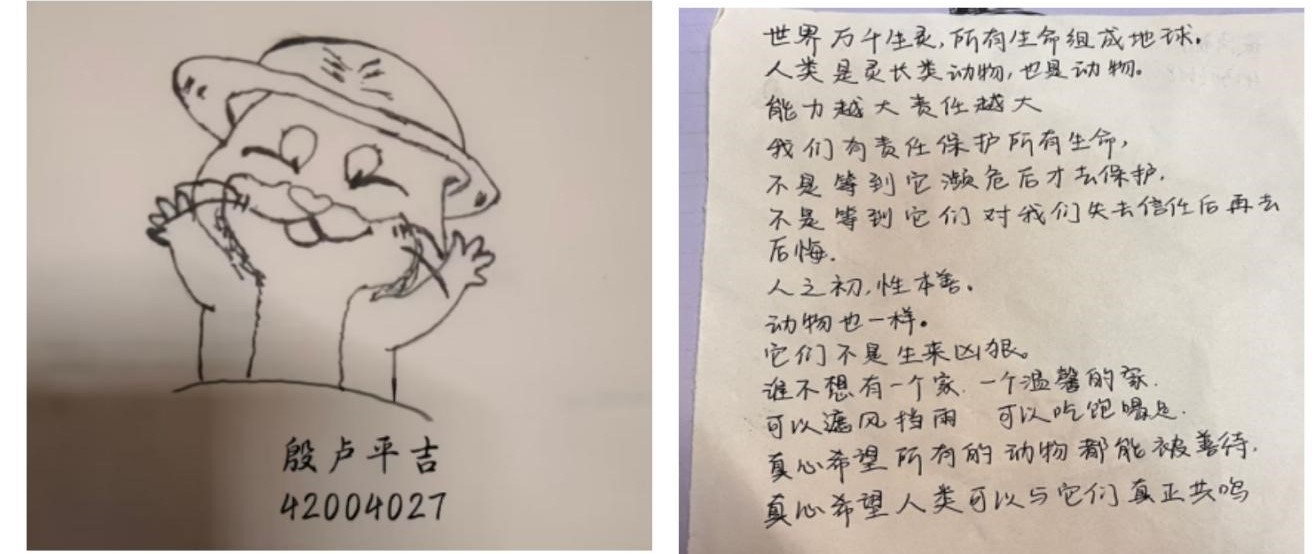 殷卢平吉
42004027
世界万千生灵,所有生命组成地球。
人类是灵长类动物,也是动物。
能力越大责任越大
我们有责任保护所有生命,
不是等到它濒危后才去保护.
不是等到它们对我们失去信任后再去
后悔.
人之初,性本善。
动物也一样。
它们不是生来凶狠。
谁不想有一个家.一个温馨的家.
可以遮风挡雨 可以吃饱喝足.
真心希望所有的动物都能被善待.
真心希望人类可以与它们真正共鸣